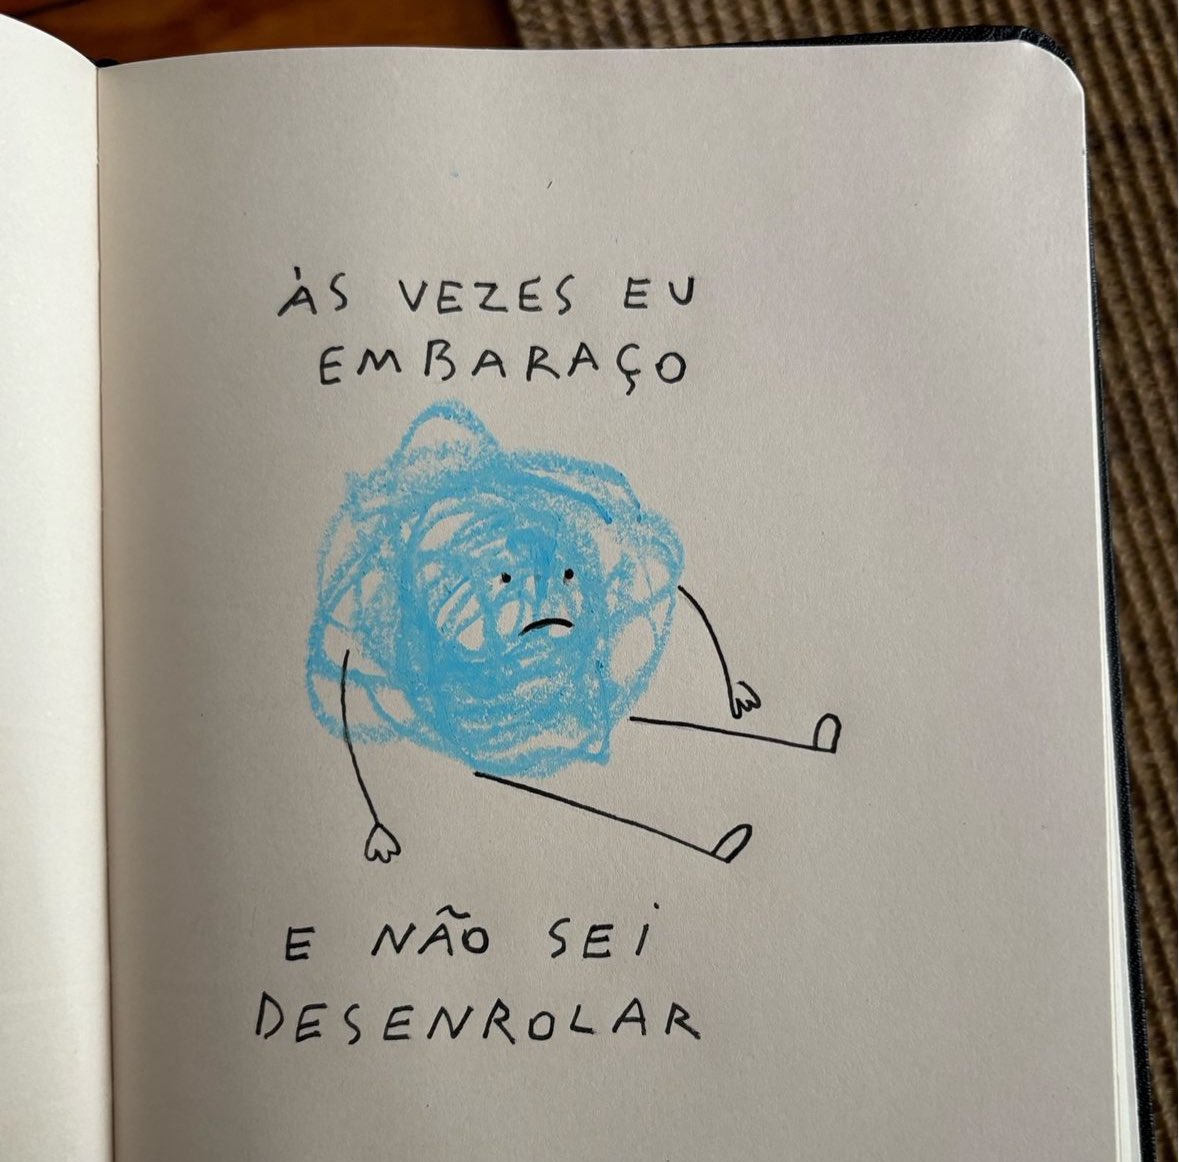 ÀS VEZES EU
EMBARAÇO
E NÃO SEI
DESENROLAR